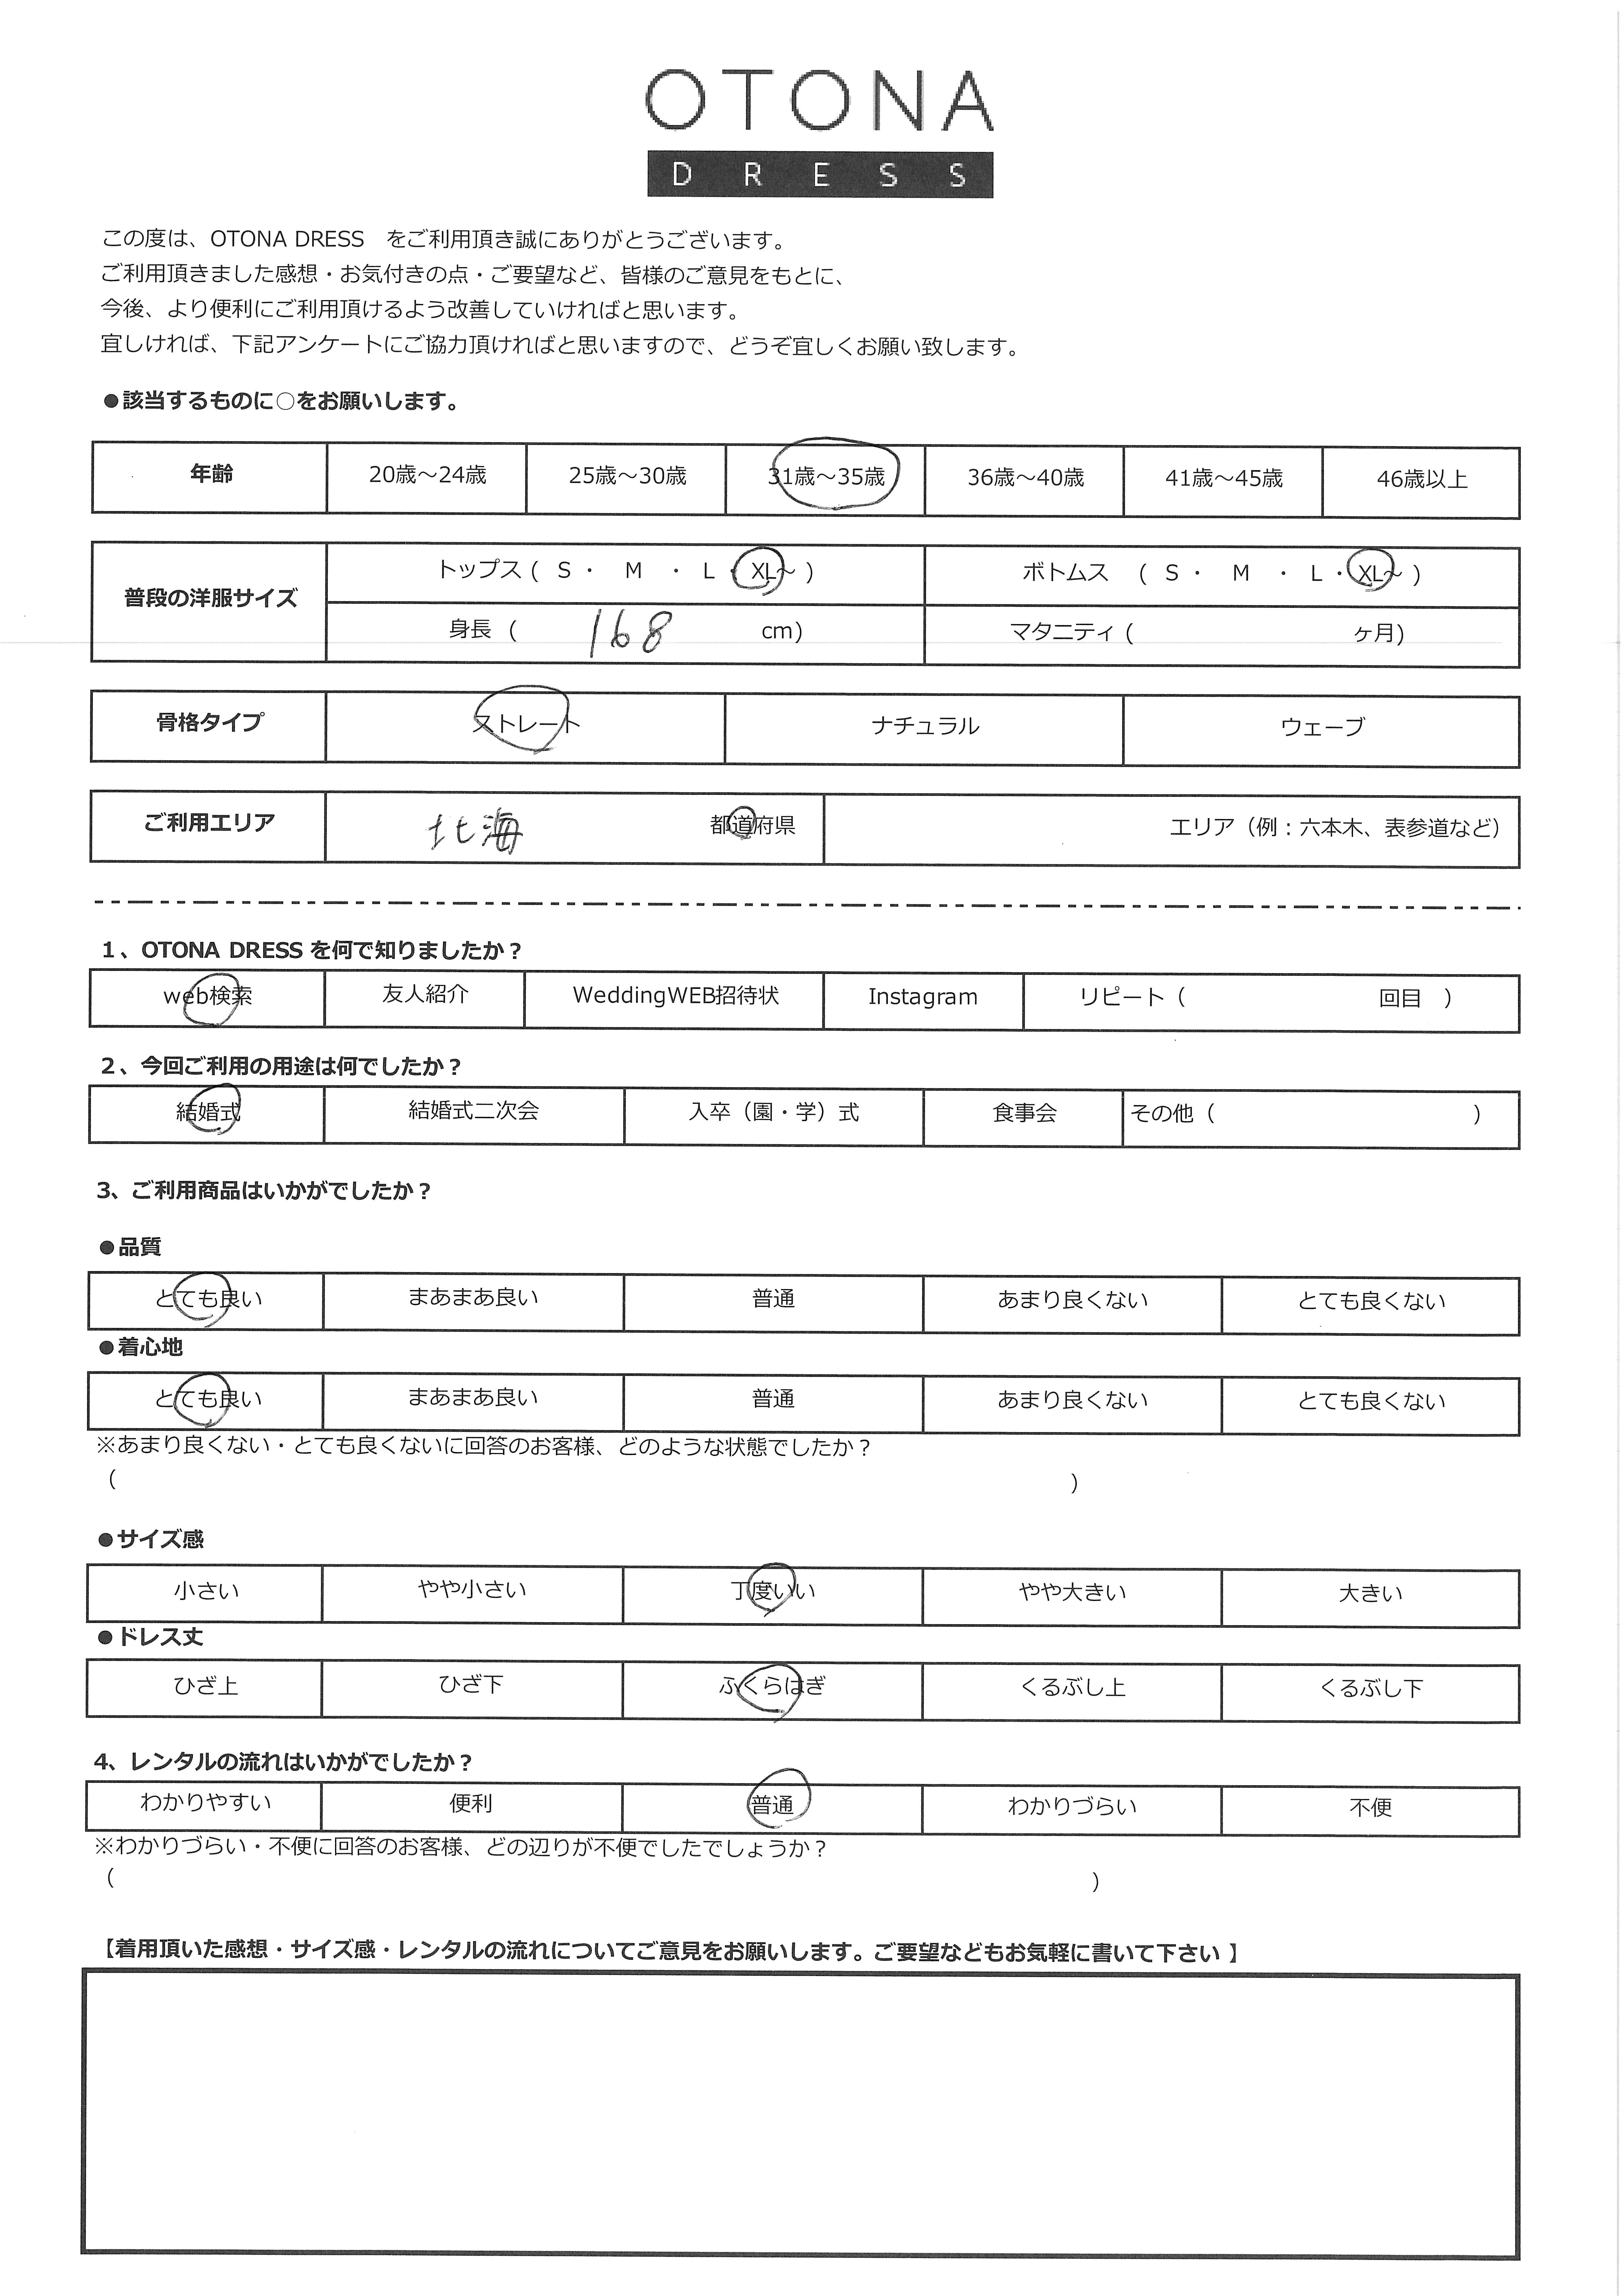 OTONA
DRESS
この度は、OTONA DRESS　をご利用頂き誠にありがとうございます。
ご利用頂きました感想・お気付きの点・ご要望など、皆様のご意見をもとに、
今後、より便利にご利用頂けるよう改善していければと思います。
宜しければ、下記アンケートにご協力頂ければと思いますので、どうぞ宜しくお願い致します。
●該当するものに○をお願いします。
年齢 20歳～24歳 25歳～30歳 31歳～35歳 36歳～40歳 41歳～45歳 46歳以上
普段の洋服サイズ トップス ( S ・ M ・ L ・ XL～ ) ボトムス ( S ・ M ・ L ・ XL～ )
身長 ( 168 cm) マタニティ ( ヶ月)
骨格タイプ ストレート ナチュラル ウェーブ
ご利用エリア 北海 都道府県 エリア（例：六本木、表参道など）
1、OTONA DRESS を何で知りましたか？
web検索 友人紹介 WeddingWEB招待状 Instagram リピート（ 回目 ）
2、今回ご利用の用途は何でしたか？
結婚式 結婚式二次会 入卒（園・学）式 食事会 その他（ ）
3、ご利用商品はいかがでしたか？
●品質
とても良い まあまあ良い 普通 あまり良くない とても良くない
●着心地
とても良い まあまあ良い 普通 あまり良くない とても良くない
※あまり良くない・とても良くないに回答のお客様、どのような状態でしたか？
（ ）
●サイズ感
小さい やや小さい 丁度いい やや大きい 大きい
●ドレス丈
ひざ上 ひざ下 ふくらはぎ くるぶし上 くるぶし下
4、レンタルの流れはいかがでしたか？
わかりやすい 便利 普通 わかりづらい 不便
※わかりづらい・不便に回答のお客様、どの辺りが不便でしたでしょうか？
（ ）
【着用頂いた感想・サイズ感・レンタルの流れについてご意見をお願いします。ご要望などもお気軽に書いて下さい 】